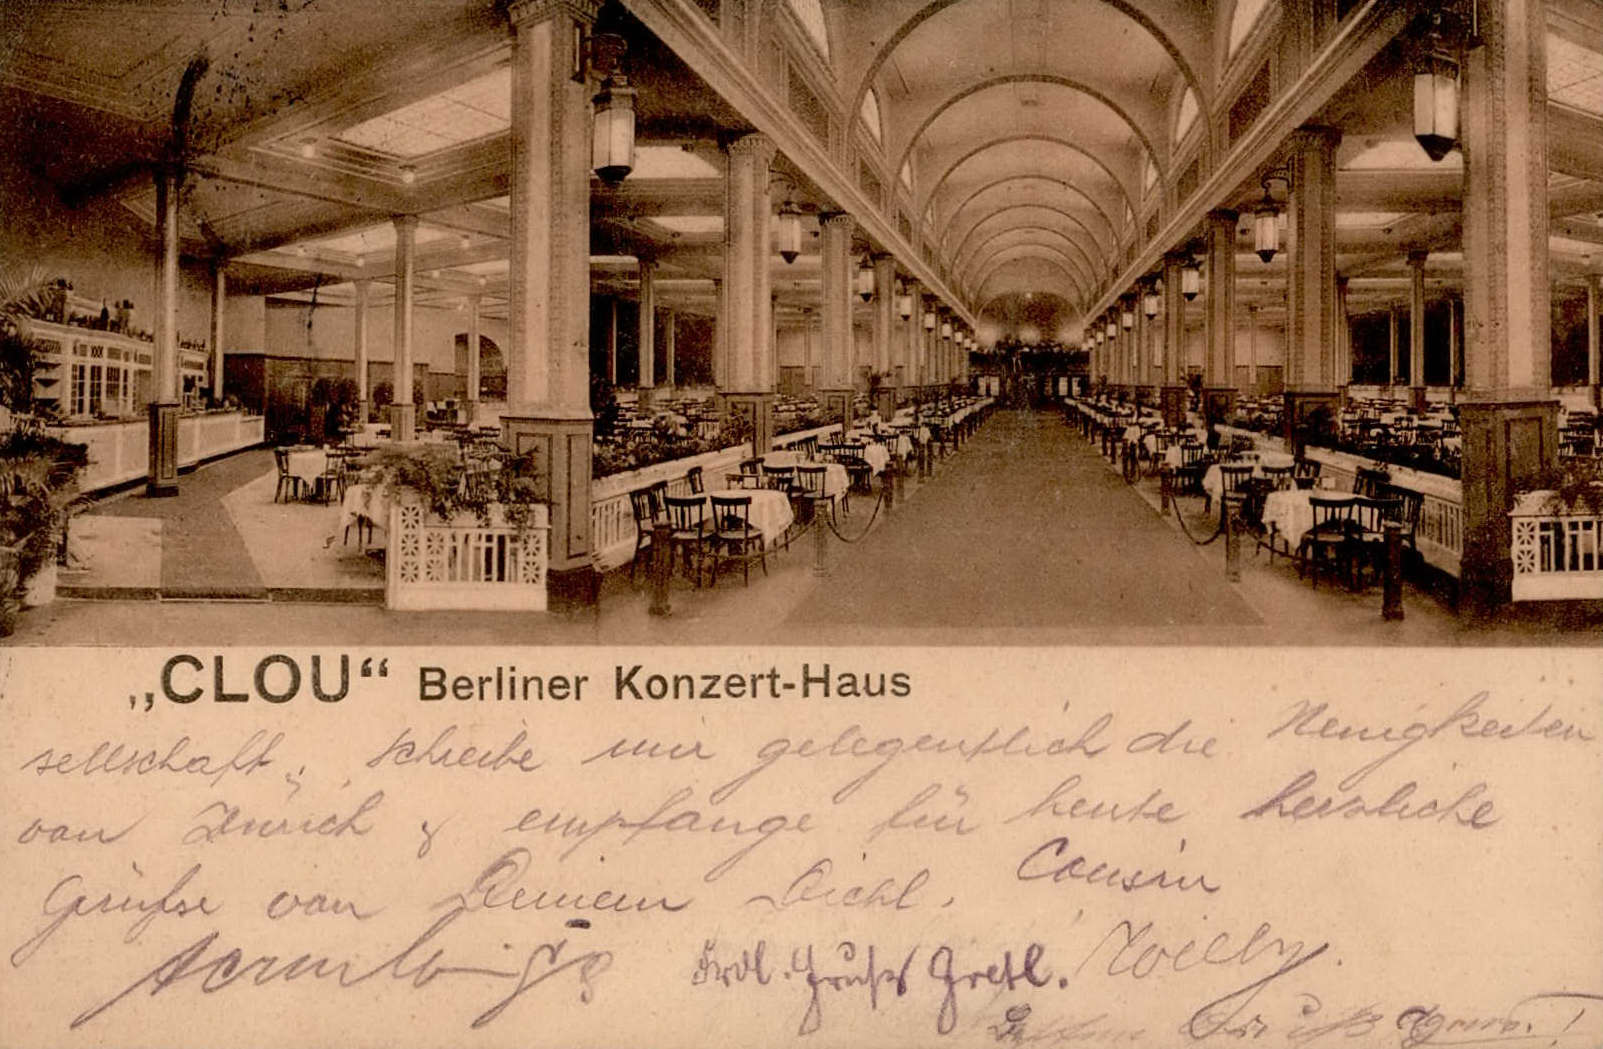 „CLOU“ Berliner Konzert-Haus
sellschaft, schreibe mir gelegentlich die Neuigkeiten
von Zürich & empfange für heute herzliche
Grüsse von Deinem Cousin
Frdl. Gruss Gretl. Willy.